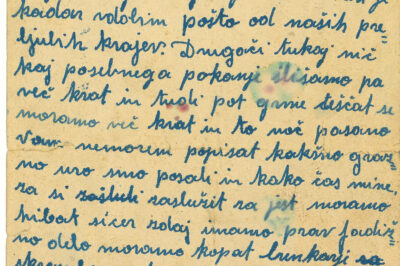 kadar vdobim pošto od naših pre"
ljubih krajev. Drugači tukaj nič
kaj posebnega pokanje slišamo pa
več krat in tudi pot grme tiščat se
moramo več krat in to noč pasamo
Vam nemorem popisat kakšno graz"
no uro smo posali in kako čas mine,
za si zašluti zaslužit za jest moramo
hibat sicer zdaj imamo prav fadiž"
no delo moramo kopat